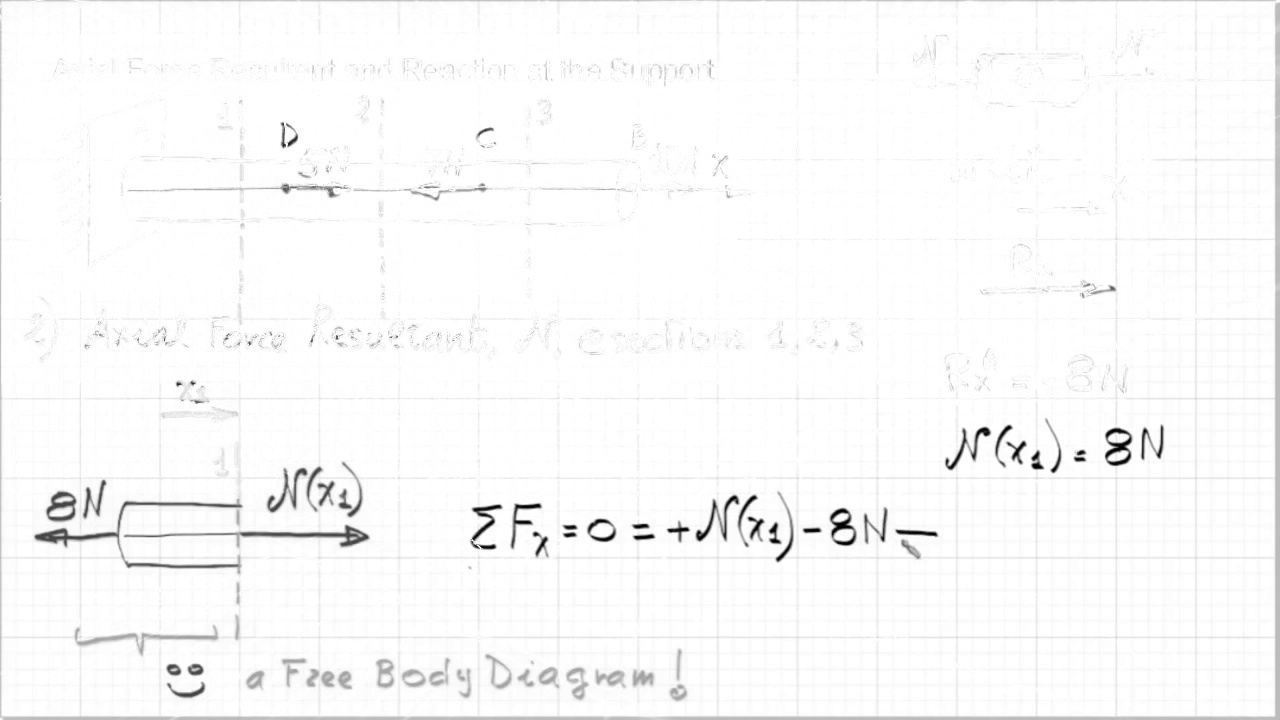 Axial Force Resultant and Reaction at the Support
N N
1 2 3
D C B
5N 7N x
2) Axial Force Resultant, N, @ sections 1,2,3
x₁
Rxᴬ = -8N
N(x₁) = 8N
1
8N N(x₁)
ΣFₓ = 0 = +N(x₁) - 8N —
a Free Body Diagram!